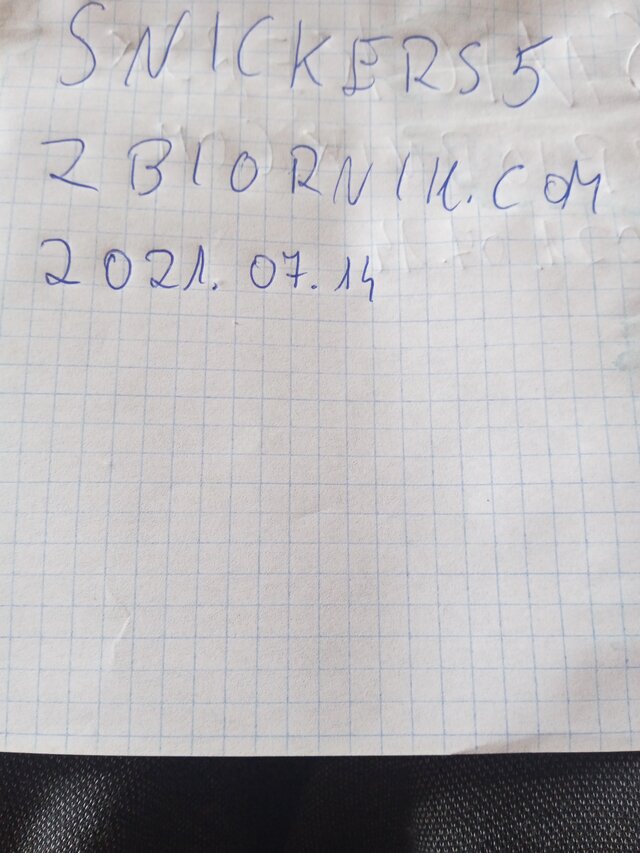 SNICKERS5
ZBIORNIK.COM
2021.07.14